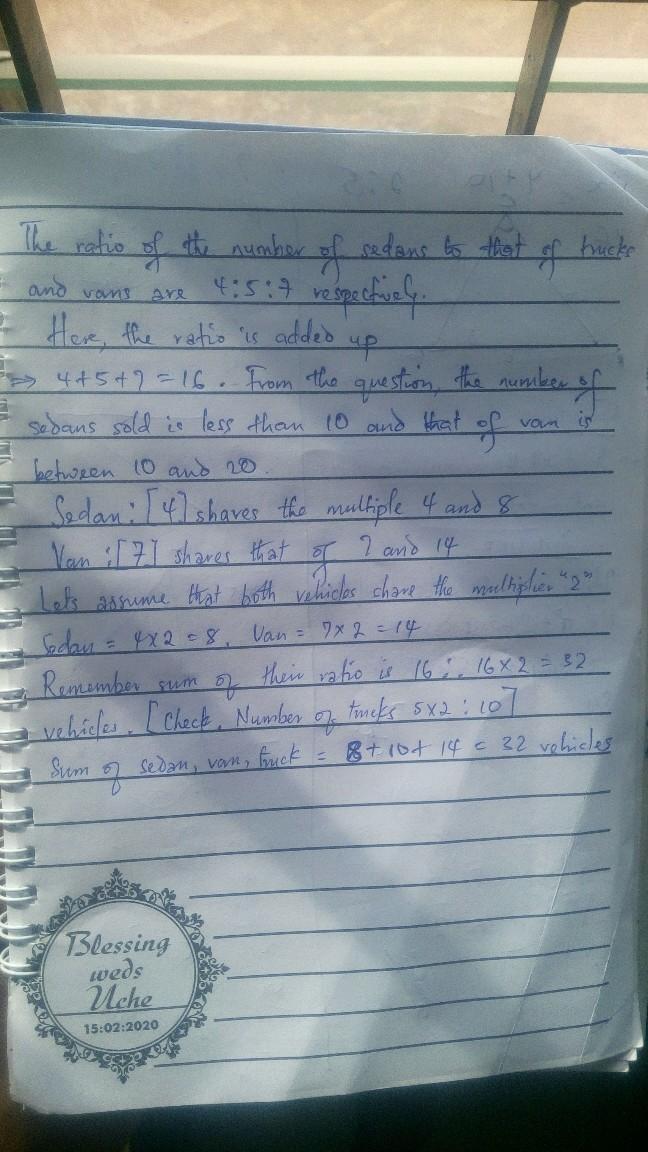 The ratio of the number of sedans to that of trucks
and vans are 4:5:7 respectively.
Here, the ratio is added up
⇒ 4+5+7 = 16. From the question, the number of
sedans sold is less than 10 and that of van is
between 10 and 20.
Sedan: [4] shares the multiple 4 and 8
Van: [7] shares that of 7 and 14
Lets assume that both vehicles share the multiplier "2"
Sedan = 4x2 = 8, Van = 7x2 = 14
Remember sum of their ratio is 16 ∴ 16x2 = 32
vehicles. [Check, Number of trucks 5x2 : 10]
Sum of sedan, van, truck = 8+10+14 = 32 vehicles
Blessing
weds
Uche
15:02:2020